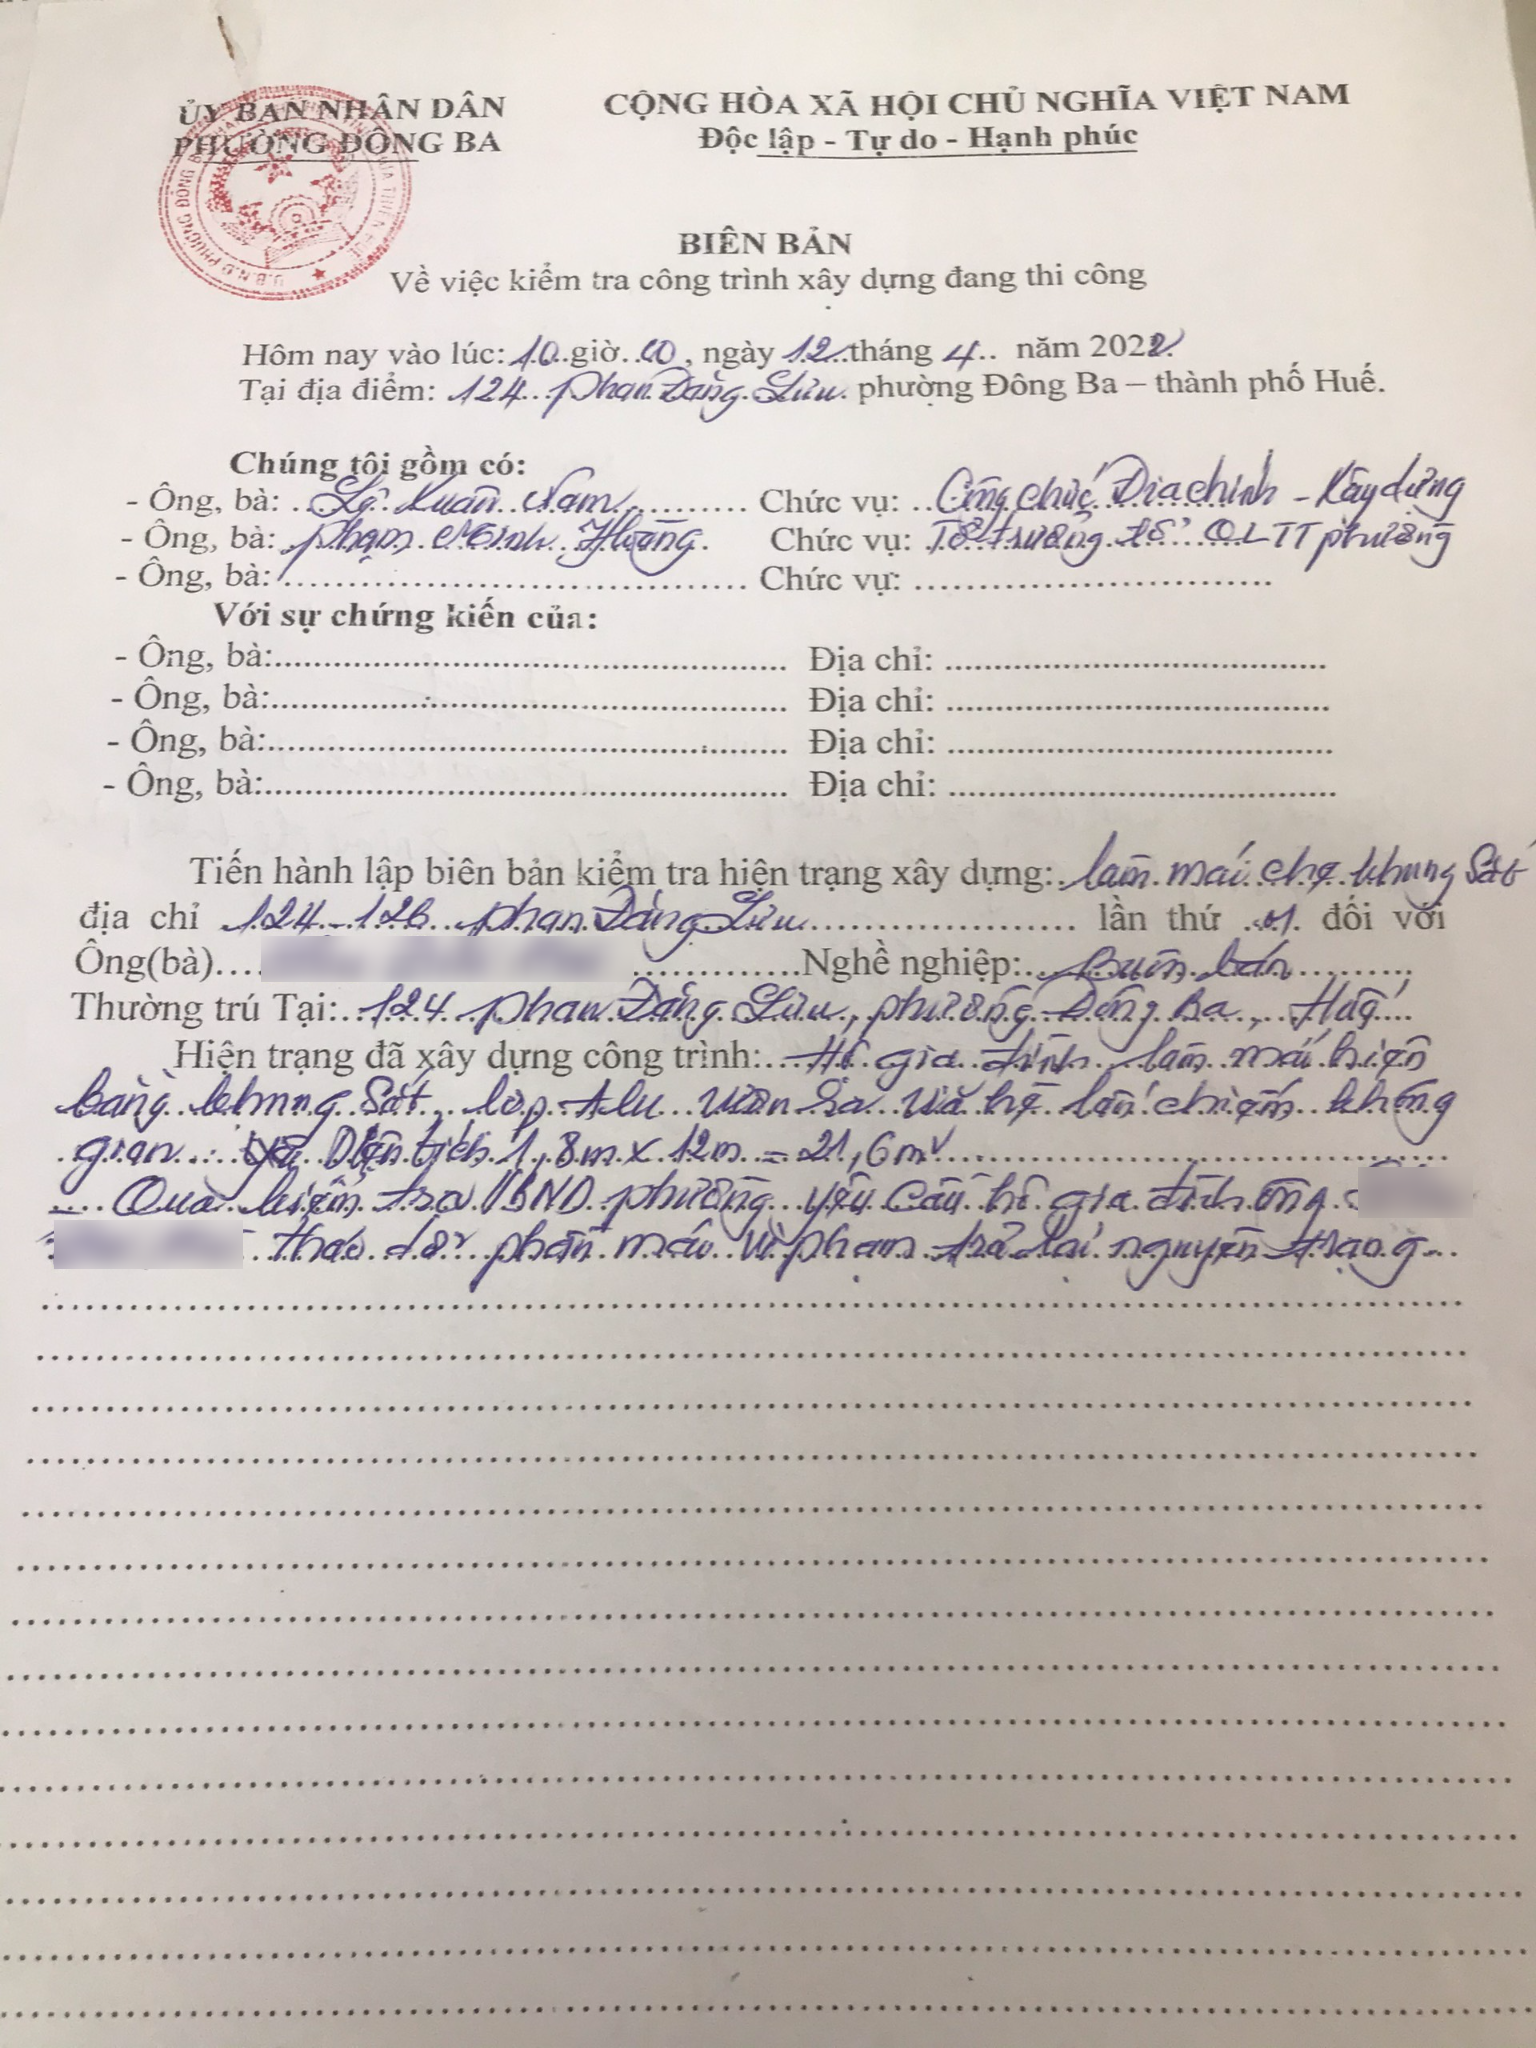 ỦY BAN NHÂN DÂN
PHƯỜNG ĐÔNG BA
CỘNG HÒA XÃ HỘI CHỦ NGHĨA VIỆT NAM
Độc lập - Tự do - Hạnh phúc
BIÊN BẢN
Về việc kiểm tra công trình xây dựng đang thi công
Hôm nay vào lúc: 10 giờ 00, ngày 12 tháng 4 năm 2022
Tại địa điểm: 124 Phan Đăng Lưu phường Đông Ba – thành phố Huế.
Chúng tôi gồm có:
- Ông, bà: Lê Xuân Nam Chức vụ: Công chức Địa chính - Xây dựng
- Ông, bà: Phạm Minh Hoàng Chức vụ: Tổ trưởng tổ QLTT phường
- Ông, bà: Chức vụ:
Với sự chứng kiến của:
- Ông, bà: Địa chỉ:
- Ông, bà: Địa chỉ:
- Ông, bà: Địa chỉ:
- Ông, bà: Địa chỉ:
Tiến hành lập biên bản kiểm tra hiện trạng xây dựng: làm mái che khung sắt
địa chỉ 124-126 Phan Đăng Lưu lần thứ 01 đối với
Ông(bà) Nghề nghiệp: Buôn bán
Thường trú Tại: 124 Phan Đăng Lưu, phường Đông Ba, Huế
Hiện trạng đã xây dựng công trình: Hộ gia đình làm mái hiên
bằng khung sắt, lợp Alu vươn ra vỉa hè lấn chiếm không
gian Diện tích 1,8m x 12m = 21,6m²
Qua kiểm tra UBND phường yêu cầu hộ gia đình ông
tháo dỡ phần mái vi phạm trả lại nguyên trạng